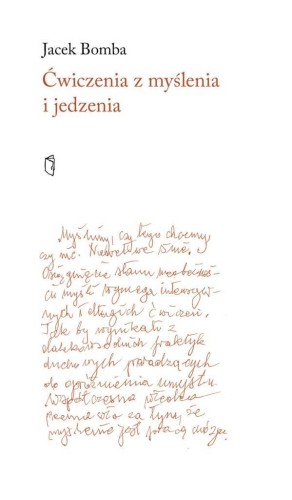 Jacek Bomba
Ćwiczenia z myślenia
i jedzenia
Myślimy, czy tego chcemy,
czy nie. Niewątpliwe
Osiągnięcie stanu nieobecnoś-
ci myśli wymaga intensyw-
nych i długich ćwiczeń.
Jak by wynikało z
dalekowschodnich praktyk
duchowych prowadzących
do opróżnienia umysłu.
Współczesna
za tym, że
myślenie jest